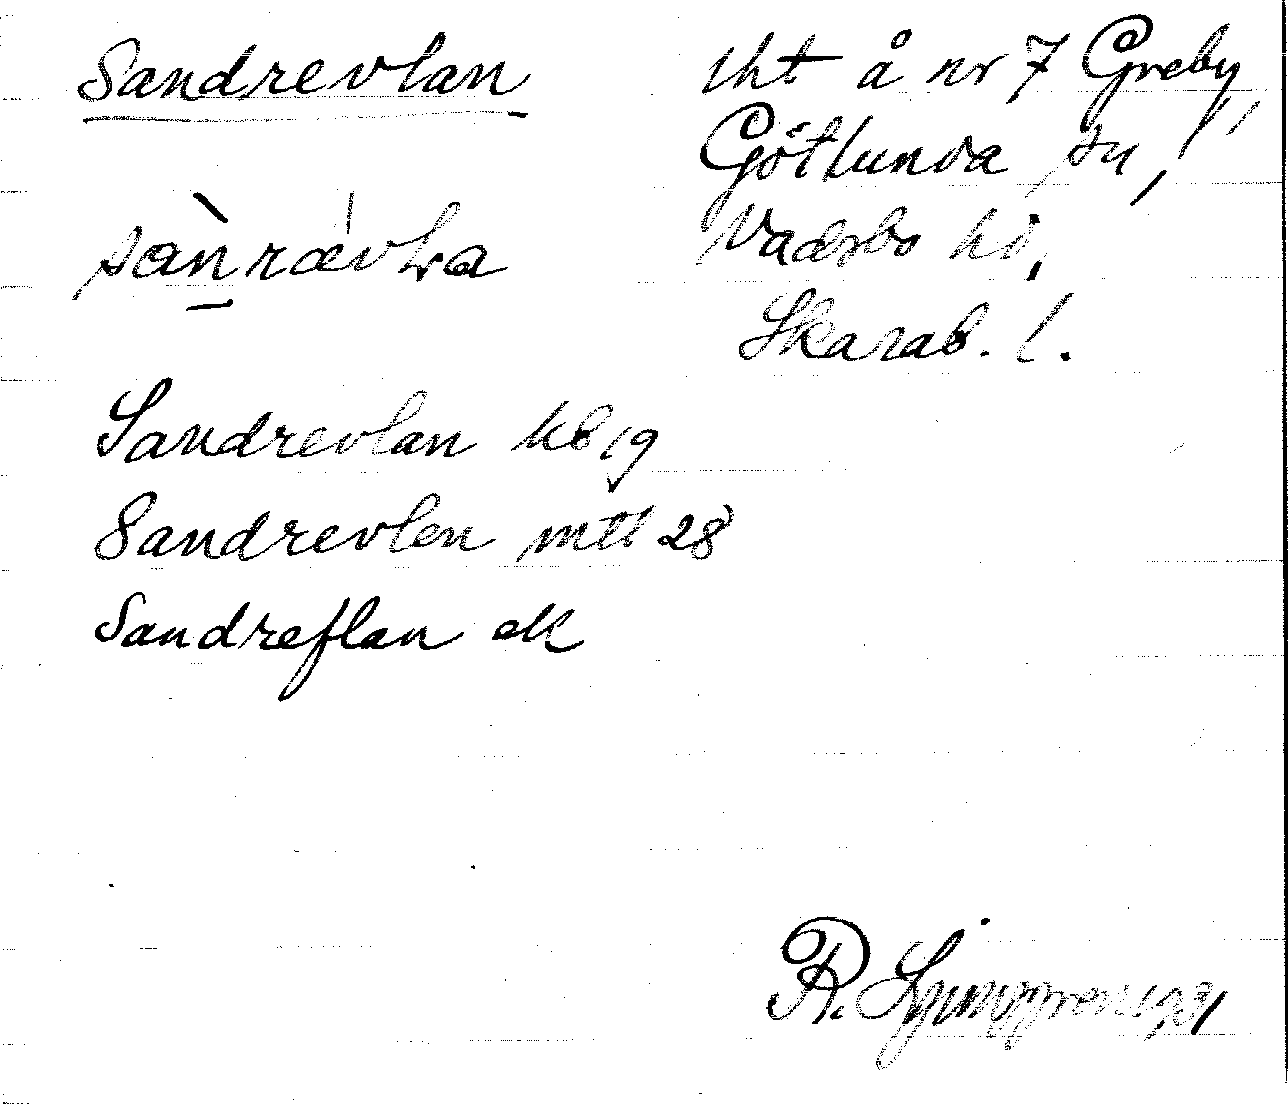 Sandrevlan
tht å nr 7 Greby,
Götlunda sn,
Vadsbo hd,
Skarab. l.
sànrævla
Sandrevlan kb 19
Sandrevlen mtl 28
Sandreflan ek
R. Ljunggren 1931